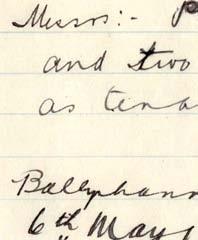 Messrs:- P
and two
as tena
Ballyhann
6th May